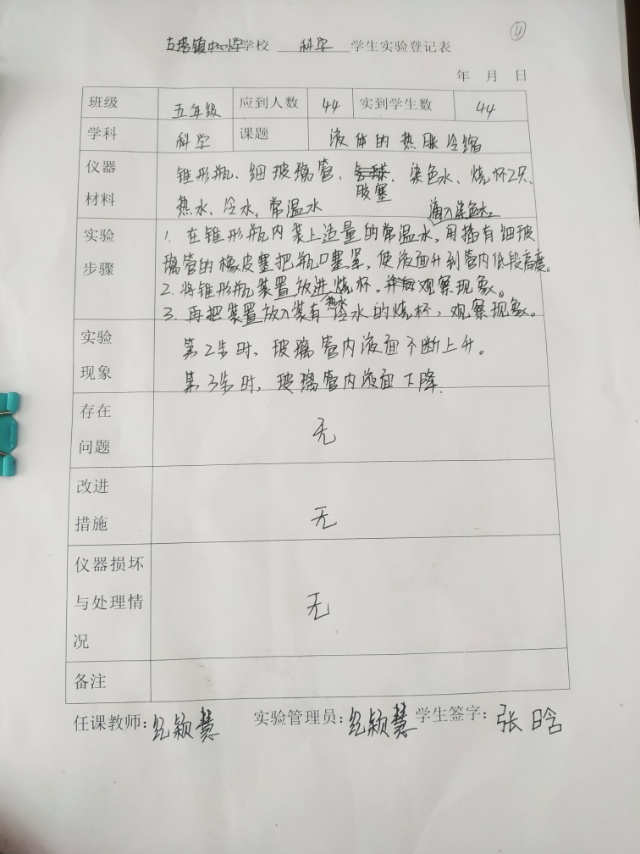 ④
五塔镇中心小学学校 科学 学生实验登记表
年 月 日
班级 五年级 应到人数 44 实到学生数 44
学科 科学 课题 液体的热胀冷缩
仪器材料 锥形瓶、细玻璃管、胶塞、染色水、烧杯2只、
热水、冷水、常温水
滴入染色水。
实验步骤 1. 在锥形瓶内装上适量的常温水,用插有细玻
璃管的橡皮塞把瓶口塞紧,使液面升到管内低段高度。
2. 将锥形瓶装置放进烧杯,并观察现象。
热水
3. 再把装置放入装有冷水的烧杯,观察现象。
实验现象 第2步时,玻璃管内液面不断上升。
第3步时,玻璃管内液面下降.
存在问题 无
改进措施 无
仪器损坏与处理情况 无
备注
任课教师:纪颖慧 实验管理员:纪颖慧 学生签字:张晗